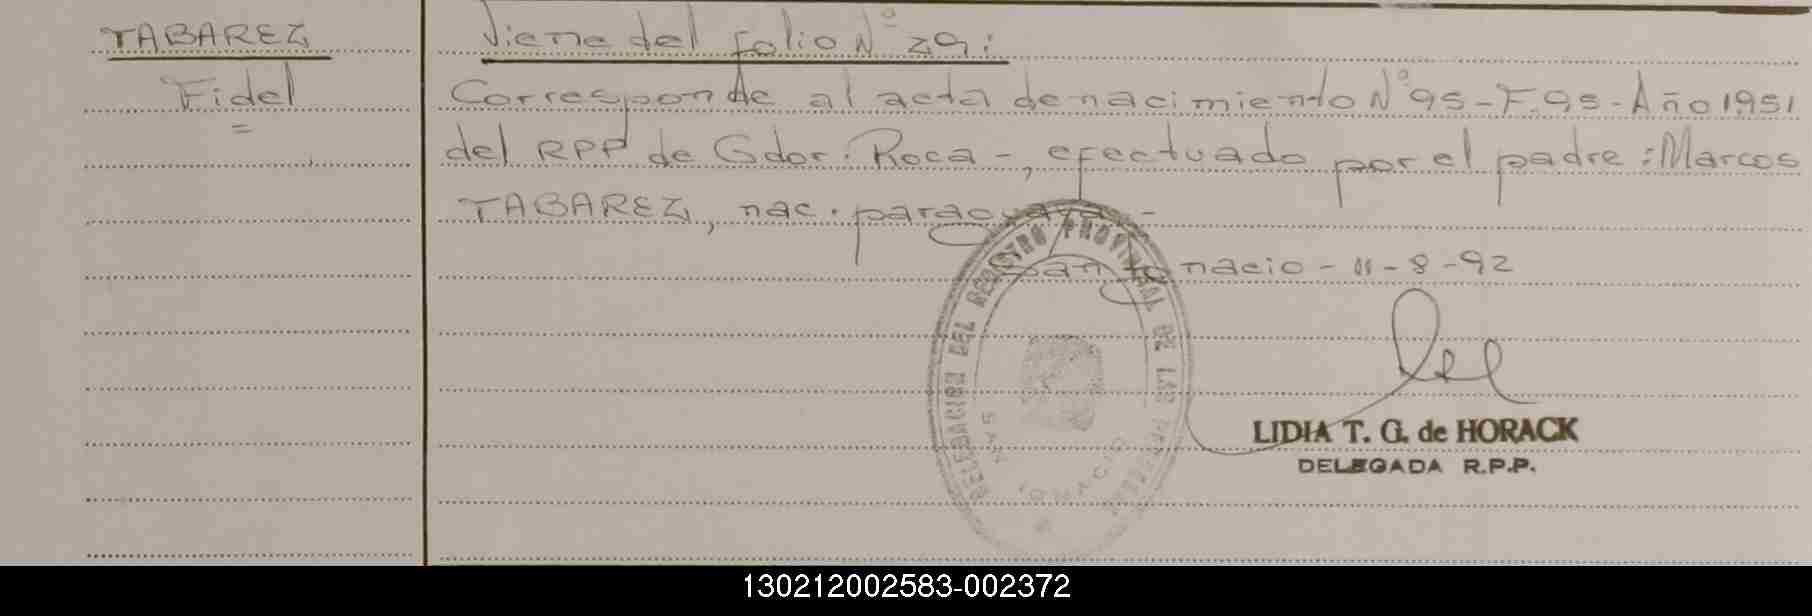 TABAREZ
Fidel
=
Viene del folio Nº 29:
Corresponde al acta de nacimiento Nº 95 - F. 95 - Año 1951
del RPP de Gdor. Roca -, efectuado por el padre: Marcos
TABAREZ, nac. paraguaya -
San Ignacio - 11 - 8 - 92
DELEGACION DEL REGISTRO PROVINCIAL DE LAS PERSONAS
SAN IGNACIO
LIDIA T. G. de HORACK
DELEGADA R.P.P.
130212002583-002372